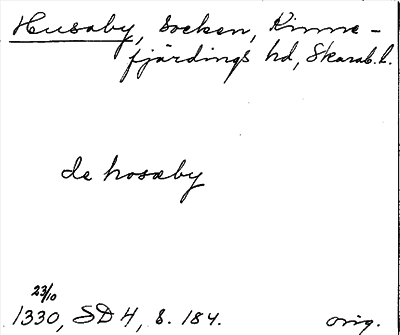 Husaby, socken, Kinne-
fjärdings hd, Skarab. l.
de hosæby
23/10
1330, SD 4, s. 184. orig.